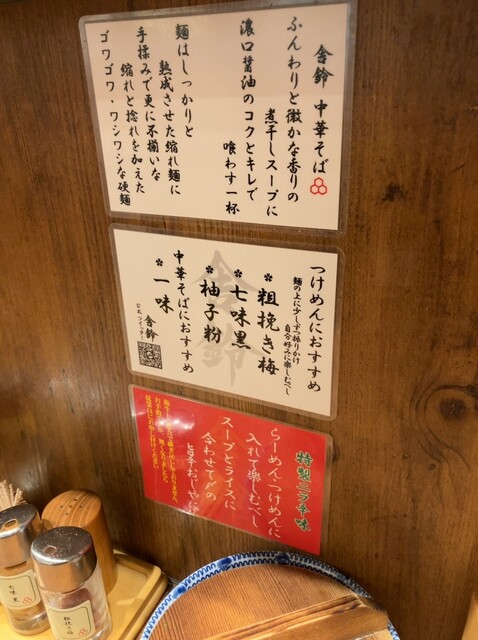 舎鈴 中華そば
ふんわりと微かな香りの
煮干しスープに
濃口醤油のコクとキレで
喰わす一杯
麺はしっかりと
熟成させた縮れ麺に
手揉みで更に不揃いな
縮れと捻れを加えた
ゴワゴワ・ワシワシな硬麺
つけめんにおすすめ
麺の上に少しずつ振りかけ
自分好みに楽しむべし
*粗挽き梅
*七味黒
*柚子粉
中華そばにおすすめ
*一味
舎鈴
公式ツイッター
舎鈴
特製ニラ辛味
らーめん・つけめんに
入れて楽しむべし
スープとライスに
合わせて〆の
旨辛おじやに
七味黒
粗挽き梅